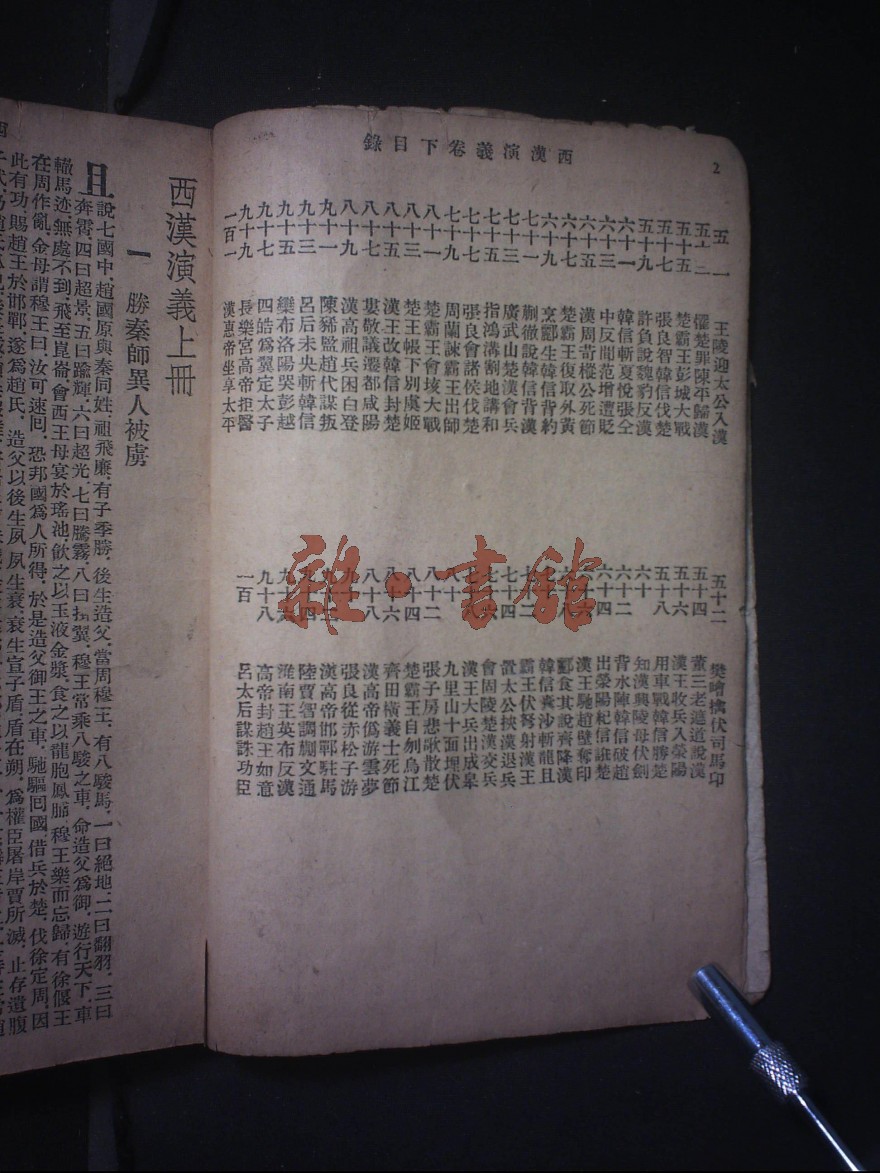 西漢演義卷下目錄
2
五一 王陵迎太公入漢
五十二 樊噲擒伏司馬卬
懼楚罪陳平歸漢
五十四 董三老遮道說漢
五十五 楚霸王彭城大戰
五十六 漢王收兵入滎陽
五十七 張良智韓信伐楚
五十八 用車戰韓信勝楚
五十九 許負說魏豹反漢
六十 知漢興陵母伏劍
六十一 韓信斬夏悅張仝
六十二 背水陣韓信破趙
六十三 中反間范增遭貶
六十四 出滎陽紀信誑楚
六十五 漢周苛樅公死節
六十六 漢王馳趙壁奪印
六十七 楚霸王復取外黃
六十八 酈食其說齊降漢
六十九 烹酈生韓信背約
七十 韓信囊沙斬龍且
七十一 蒯徹說韓信背漢
七十二 霸王伏弩射漢王
七十三 廣武山楚漢會兵
七十四 置太公挾漢退兵
七十五 指鴻溝割地講和
七十六 會固陵楚漢交兵
七十七 張良會諸侯伐楚
七十八 漢王大兵出成皋
七十九 周蘭諫霸王出師
八十 九里山十面埋伏
八十一 楚霸王會垓大戰
八十二 張子房悲歌散楚
八十三 楚王帳下別虞姬
八十四 楚霸王自刎烏江
八十五 漢王改韓信封楚
八十六 齊田橫義士死節
八十七 婁敬議遷都咸陽
八十八 漢高帝僞游雲夢
八十九 漢高祖兵困白登
九十 張良從赤松子游
九十一 陳豨監趙代謀叛
九十二 漢高帝邯鄲駐馬
九十三 呂后未央斬韓信
九十四 陸賈智調蒯文通
九十五 欒布洛陽哭彭越
九十六 淮南王英布反漢
九十七 四皓爲翼定太子
九十八 高帝封趙王如意
九十九 長樂宮高帝拒醫
一百 呂太后謀誅功臣
一百一 漢惠帝坐享太平
雜·書館
西漢演義上冊
一 勝秦師異人被虜
且說七國中，趙國原與秦同姓，祖飛廉，有子季勝，後生造父，當周穆王，有八駿馬，一曰絕地，二曰翻羽，三曰
奔霄，四曰超景，五曰踰輝，六曰超光，七曰騰霧，八曰扶翼，穆王常乘八駿之車，命造父爲御，遊行天下，車
轍馬迹，無處不到，飛至崑崙，會西王母，宴於瑤池，飲之以玉液金漿，食之以龍胞鳳脯，穆王樂而忘歸，有徐偃王
在周作亂，金母謂穆王曰，汝可速囘，恐邦國爲人所得，於是造父御王之車，馳驅囘國，借兵於楚，伐徐定周，因
此有功，賜趙王於邯鄲，遂爲趙氏，造父以後生夙，夙生衰，衰生宣子盾，盾在朔，爲權臣屠岸賈所滅，止存遺腹